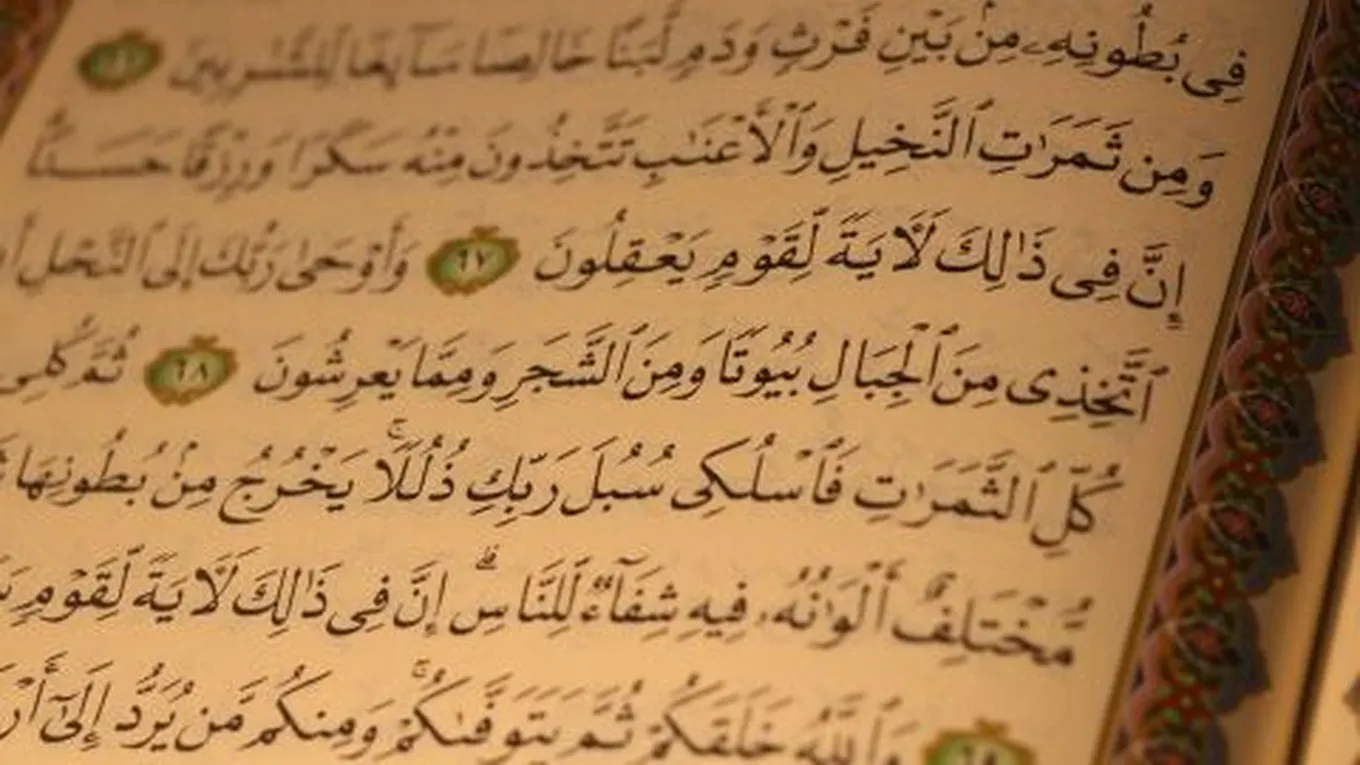 فِى بُطُونِهِۦ مِنۢ بَيْنِ فَرْثٍ وَدَمٍ لَّبَنًا خَالِصًا سَآئِغًا لِّلشَّٰرِبِينَ ٦٦
وَمِن ثَمَرَٰتِ ٱلنَّخِيلِ وَٱلْأَعْنَٰبِ تَتَّخِذُونَ مِنْهُ سَكَرًا وَرِزْقًا حَسَنًا
إِنَّ فِى ذَٰلِكَ لَءَايَةً لِّقَوْمٍ يَعْقِلُونَ ٦٧ وَأَوْحَىٰ رَبُّكَ إِلَى ٱلنَّحْلِ
ٱتَّخِذِى مِنَ ٱلْجِبَالِ بُيُوتًا وَمِنَ ٱلشَّجَرِ وَمِمَّا يَعْرِشُونَ ٦٨ ثُمَّ كُلِى
كُلِّ ٱلثَّمَرَٰتِ فَٱسْلُكِى سُبُلَ رَبِّكِ ذُلُلًا ۚ يَخْرُجُ مِنۢ بُطُونِهَا
مُّخْتَلِفٌ أَلْوَٰنُهُۥ فِيهِ شِفَآءٌ لِّلنَّاسِ ۗ إِنَّ فِى ذَٰلِكَ لَءَايَةً لِّقَوْمٍ
٦٩ وَٱللَّهُ خَلَقَكُمْ ثُمَّ يَتَوَفَّىٰكُمْ ۚ وَمِنكُم مَّن يُرَدُّ إِلَىٰٓ